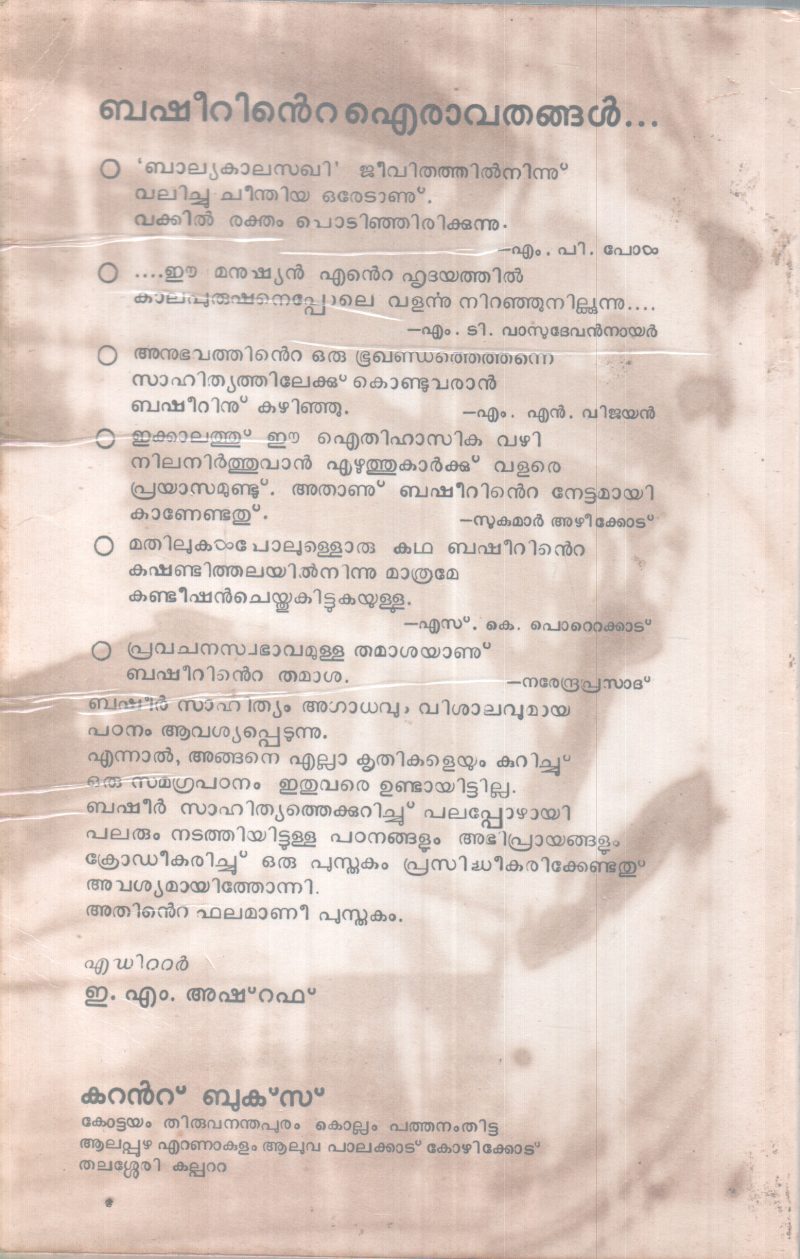 ബഷീറിൻെറ ഐരാവതങ്ങൾ...
‘ബാല്യകാലസഖി’ ജീവിതത്തിൽനിന്ന്
വലിച്ചു ചീന്തിയ ഒരേടാണ്.
വക്കിൽ രക്തം പൊടിഞ്ഞിരിക്കുന്നു.
—എം. പി. പോൾ
....ഈ മനുഷ്യൻ എൻെറ ഹൃദയത്തിൽ
കാലപുരുഷനെപ്പോലെ വളർന്നു നിറഞ്ഞുനില്ക്കുന്നു....
—എം. ടി. വാസുദേവൻനായർ
അനുഭവത്തിൻെറ ഒരു ഭൂഖണ്ഡത്തെത്തന്നെ
സാഹിത്യത്തിലേക്കു് കൊണ്ടുവരാൻ
ബഷീറിനു് കഴിഞ്ഞു.
—എം. എൻ. വിജയൻ
ഇക്കാലത്തു് ഈ ഐതിഹാസിക വഴി
നിലനിർത്തുവാൻ എഴുത്തുകാർക്കു് വളരെ
പ്രയാസമുണ്ടു്. അതാണു് ബഷീറിൻെറ നേട്ടമായി
കാണേണ്ടതു്.
—സുകുമാർ അഴീക്കോട്
മതിലുകൾപോലുള്ളൊരു കഥ ബഷീറിൻെറ
കഷണ്ടിത്തലയിൽനിന്നു മാത്രമേ
കണ്ടീഷൻചെയ്തുകിട്ടുകയുള്ളൂ.
—എസ്. കെ. പൊറെറക്കാട്
പ്രവചനസ്വഭാവമുള്ള തമാശയാണു്
ബഷീറിൻെറ തമാശ.
—നരേന്ദ്രപ്രസാദ്
ബഷീർ സാഹിത്യം അഗാധവും വിശാലവുമായ
പഠനം ആവശ്യപ്പെടുന്നു.
എന്നാൽ, അങ്ങനെ എല്ലാ കൃതികളെയും കുറിച്ചു്
ഒരു സമഗ്രപഠനം ഇതുവരെ ഉണ്ടായിട്ടില്ല.
ബഷീർ സാഹിത്യത്തെക്കുറിച്ചു് പലപ്പോഴായി
പലരും നടത്തിയിട്ടുള്ള പഠനങ്ങളും അഭിപ്രായങ്ങളും
ക്രോഡീകരിച്ചു് ഒരു പുസ്തകം പ്രസിദ്ധീകരിക്കേണ്ടതു്
അവശ്യമായിത്തോന്നി.
അതിൻെറ ഫലമാണീ പുസ്തകം.
എഡിററർ
ഇ. എം. അഷ്റഫ്
കറൻറ് ബുക്സ്
കോട്ടയം തിരുവനന്തപുരം കൊല്ലം പത്തനംതിട്ട
ആലപ്പുഴ എറണാകുളം ആലുവ പാലക്കാട് കോഴിക്കോട്
തലശ്ശേരി കല്പററ